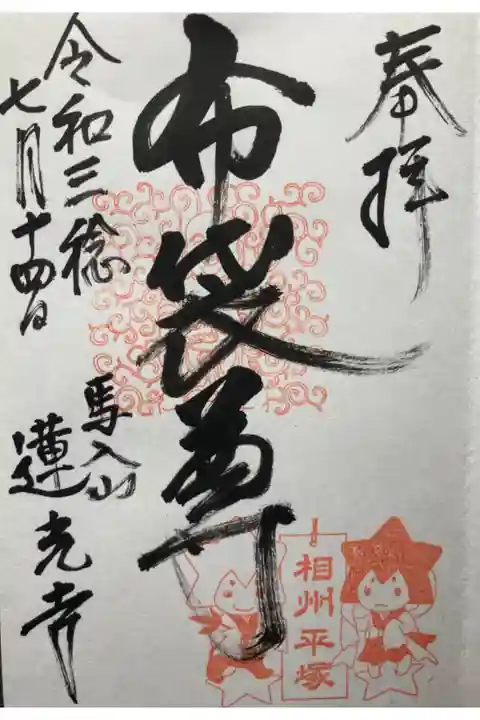 奉拝
布袋尊
令和三稔
七月十四日
馬入山
蓮光寺
相州平塚